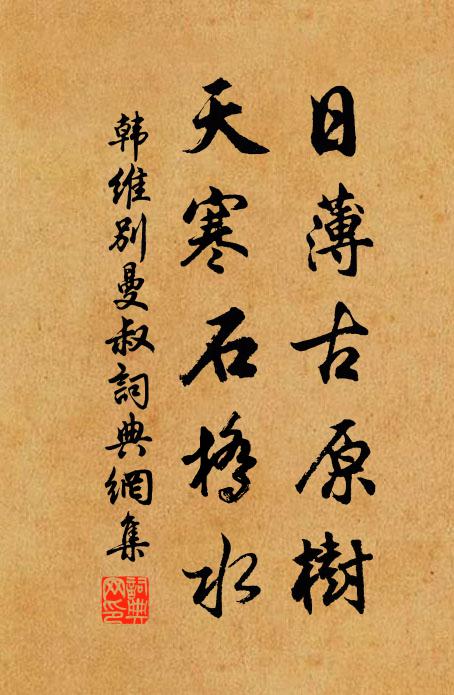 日薄古原樹
天寒石橋水
韩維别曼叔詞典網集
詞典网印